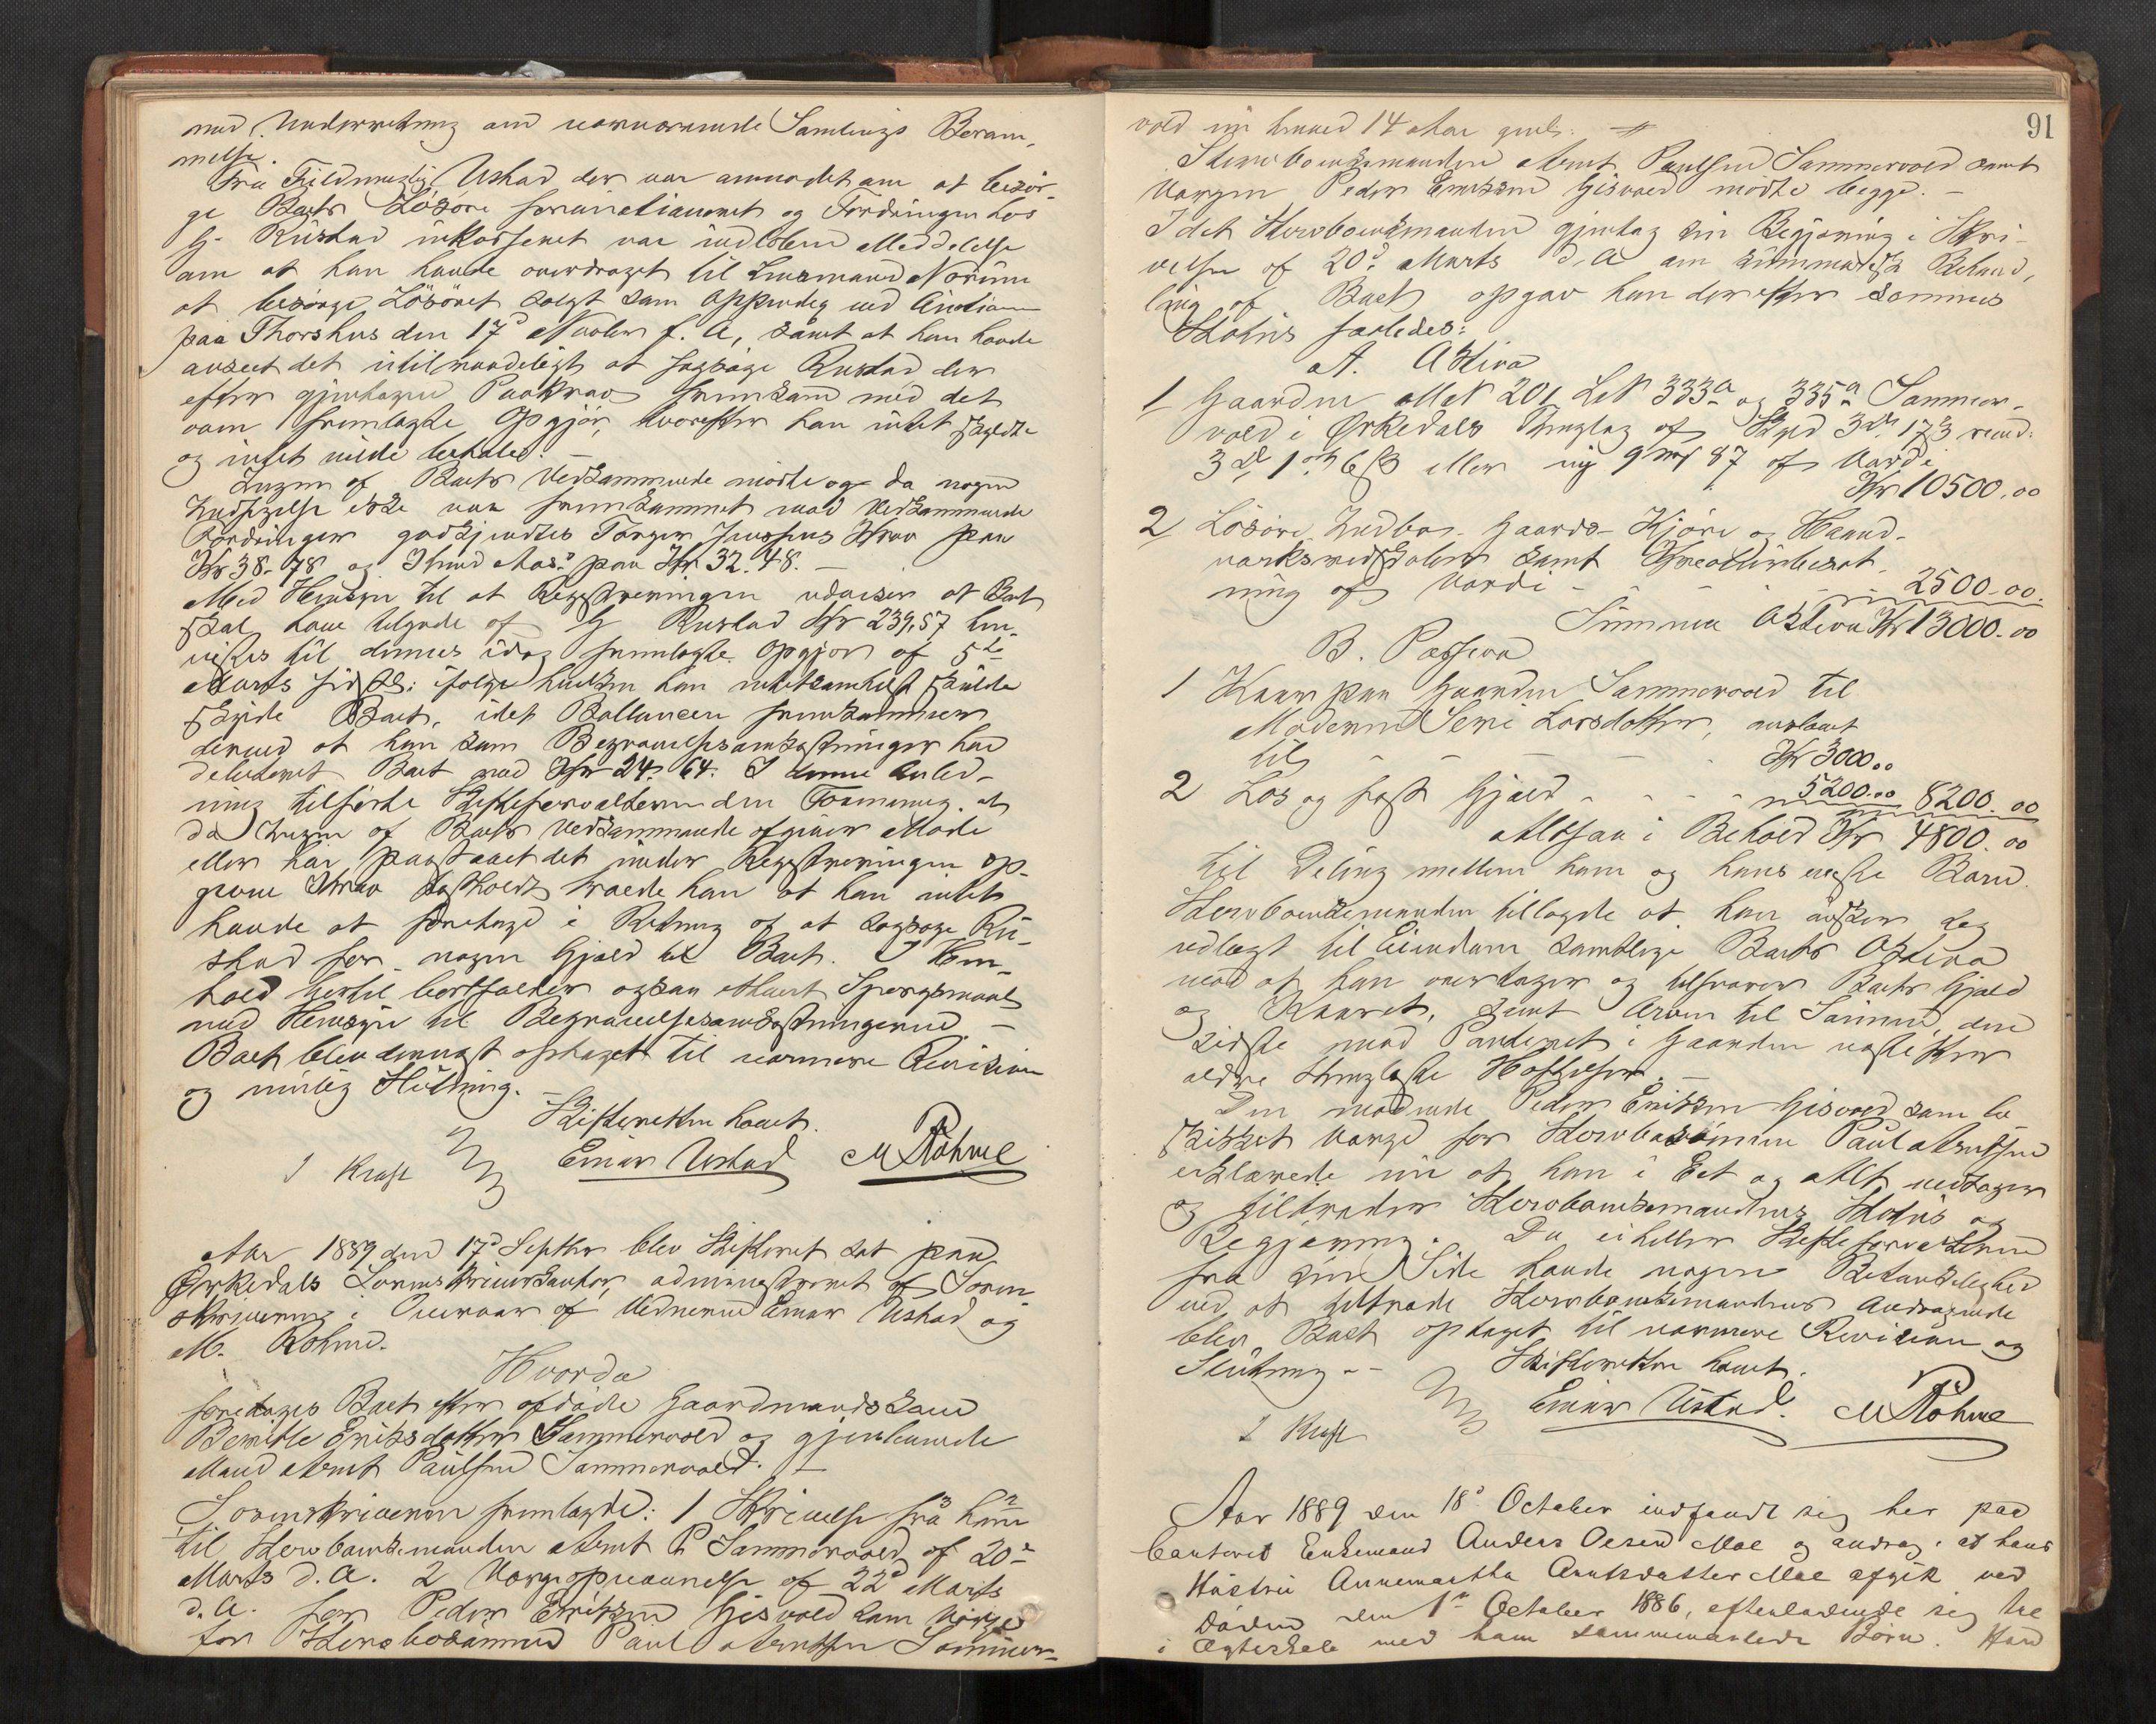 med Underretning om nærværende Samlings Beram-
melse.
Fra Fuldmægtig Ustad der var anmodet om at besør-
ge Boets Løsøre forauctioneret og Fordringen hos
G. Rustad inkasseret var indløben Meddelelse
om at han havde overdraget til Lensmand Norum
at besørge Løsøret solgt som Opgivelig ved Auction
paa Thorshus den 17d Novbr f. A, samt at han havde
anseet det utilraadeligt at sagsøge Rustad der
efter gjentagne Paakrav fremkom med det
som 1 fremlagte Opgjør, hvorefter han intet skyldte
og intet vilde betale. —
Ingen af Boets Vedkommende mødte og da nogen
Indsigelse ikke var fremkommet mod Vedkommende
Fordringer godkjendtes Torger Jenssens Krav paa
Kr 38.78 og Thend Aas's paa Kr 32.48. —
Med Hensyn til at Registreringen udviser at Boet
skal have tilgode af G Rustad Kr 239,57 hen-
vistes til dennes idag fremlagte Opgjør af 5te
Marts sidstl: ifølge hvilken han intetsomhelst skulde
skylde Boet, idet Ballancen fremkommer
derved at han som Begravelsesomkostninger har
debiteret Boet med Kr 24.64. I denne Anled-
ning tilførte Skifteforvalteren den Formening, at
da Ingen af Boets Vedkommende afgiver Møde
eller har paastaaet det under Registreringen op-
givne Krav fastholdt troede han at han intet
havde at foretage i Retning af at sagsøge Ru-
stad for nogen Gjæld til Boet. I Hen-
hold hertil bortfalder ogsaa ethvert Spørgsmaal
med Hensyn til Begravelsesomkostningerne —
Boet blev dernæst optaget til nærmere Revision
og mulig Slutning. —
Skifteretten hævet.
J Kraft Einar Ustad M Røhme
Aar 1889 den 17d Septbr blev Skifteret sat paa
Ørkedals Sorenskriverkontor, administreret af Soren-
skriveren i Overvær af Vidnerne Einar Ustad og
M. Røhme.
Hvorda
foretoges Boet efter afdøde Gaardmandskone
Beritte Eriksdatter Sommervold og gjenlevende
Mand Arnt Paulsen Sommervold. —
Sorenskriveren fremlagde: 1 Skrivelse fra ham
til Stervboenkemanden Arnt P Sommervold af 20d
Marts d. A. 2 Værgeopnævnelse af 22d Marts
d. A. for Peder Eriksen Gisvold som Værge
for Stervbosønnen Paul Arntsen Sommer-
91
vold nu henved 14 Aar gml: —
Stervboenkemanden Arnt Paulsen Sommervold samt
Værgen Peder Eriksen Gisvold mødte begge. —
Idet Stervboenkemanden gjentog sin Begjæring i Skri-
velse af 20d Marts d. A om summarisk Behand-
ling af Boet opgav han derefter sammes
Status saaledes:
A. Aktiva
1 Gaarden MN 201 LN 333a og 335a Sommer-
vold i Ørkedals Thinglag af Skyld 3 Dl. 173 revid:
3 Dl 1 ort 6 sk eller ny 9 mk 87 af Værdi
Kr 10500.00
2 Løsøre, Indbo- Gaards- Kjøre og Haand-
værksredskaber samt Kreaturbesæt-
ning af Værdi - - - 2500.00.
Summa Aktiva Kr 13000.00
B. Passiva
1 Kaar paa Gaarden Sommervold til
Moderen Seri Larsdatter, anslaaet
til - - - Kr 3000.00
2 Løs og fast Gjæld - - - - 5200.00 8200.00
Altsaa i Behold Kr 4800.00
til Deling mellem ham og hans eneste Barn.
Stervboenkemanden tillagde at han ønsker sig
udlagt til Eiendom samtlige Boets Aktiva
mod at han overtager og tilsvarer Boets Gjæld
og Kaaret, samt Arven til Sønnen, den
sidste mod Panteret i Gaarden næstefter
ældre thinglæste Heftelser. —
Den mødende Peder Eriksen Gisvold som be-
skikket Værge for Stervbosønnen Paul Arntsen
erklærede nu at han i Eet og Alt vedtager
og tiltræder Stervboenkemandens Status og
Begjæring. Da ei heller Skifteforvalteren
fra sin Side havde nogen Betænkelighed
ved at tiltræde Stervboenkemandens Andragende
blev Boet optaget til nærmere Revision og
Slutning. — Skifteretten hævet.
J Kraft Einar Ustad. M Røhme
Aar 1889 den 18d October indfandt sig her paa
Contoret Enkemand Anders Olsen Moe og androg: at hans
Hustru Annemartha Arntsdatter Moe afgik ved
Døden den 1ste October 1886, efterladende sig tre
i Ægteskab med ham sammenavlede Børn. Han